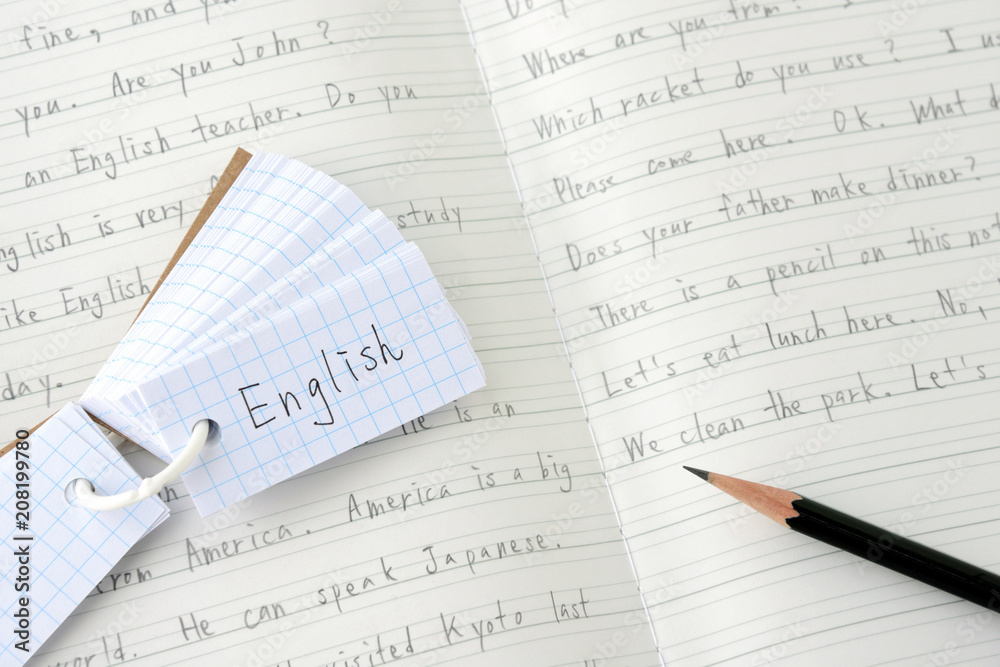 fine, and
you. Are you John?
an English teacher. Do you
English is very
study
like English
day.
English
He is an
from America. America is a big
world. He can speak Japanese.
visited Kyoto last
Where are you from?
Which racket do you use? I
Please come here. Ok. What
Does your father make dinner?
There is a pencil on this
Let's eat lunch here. No,
We clean the park. Let's
Adobe Stock | #208199780